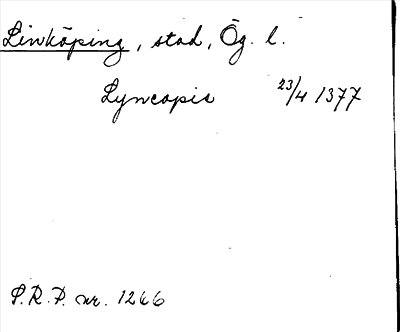 Linköping, stad, Ög. l.
Lyncopia 23/4 1377
S.R.P. nr. 1266